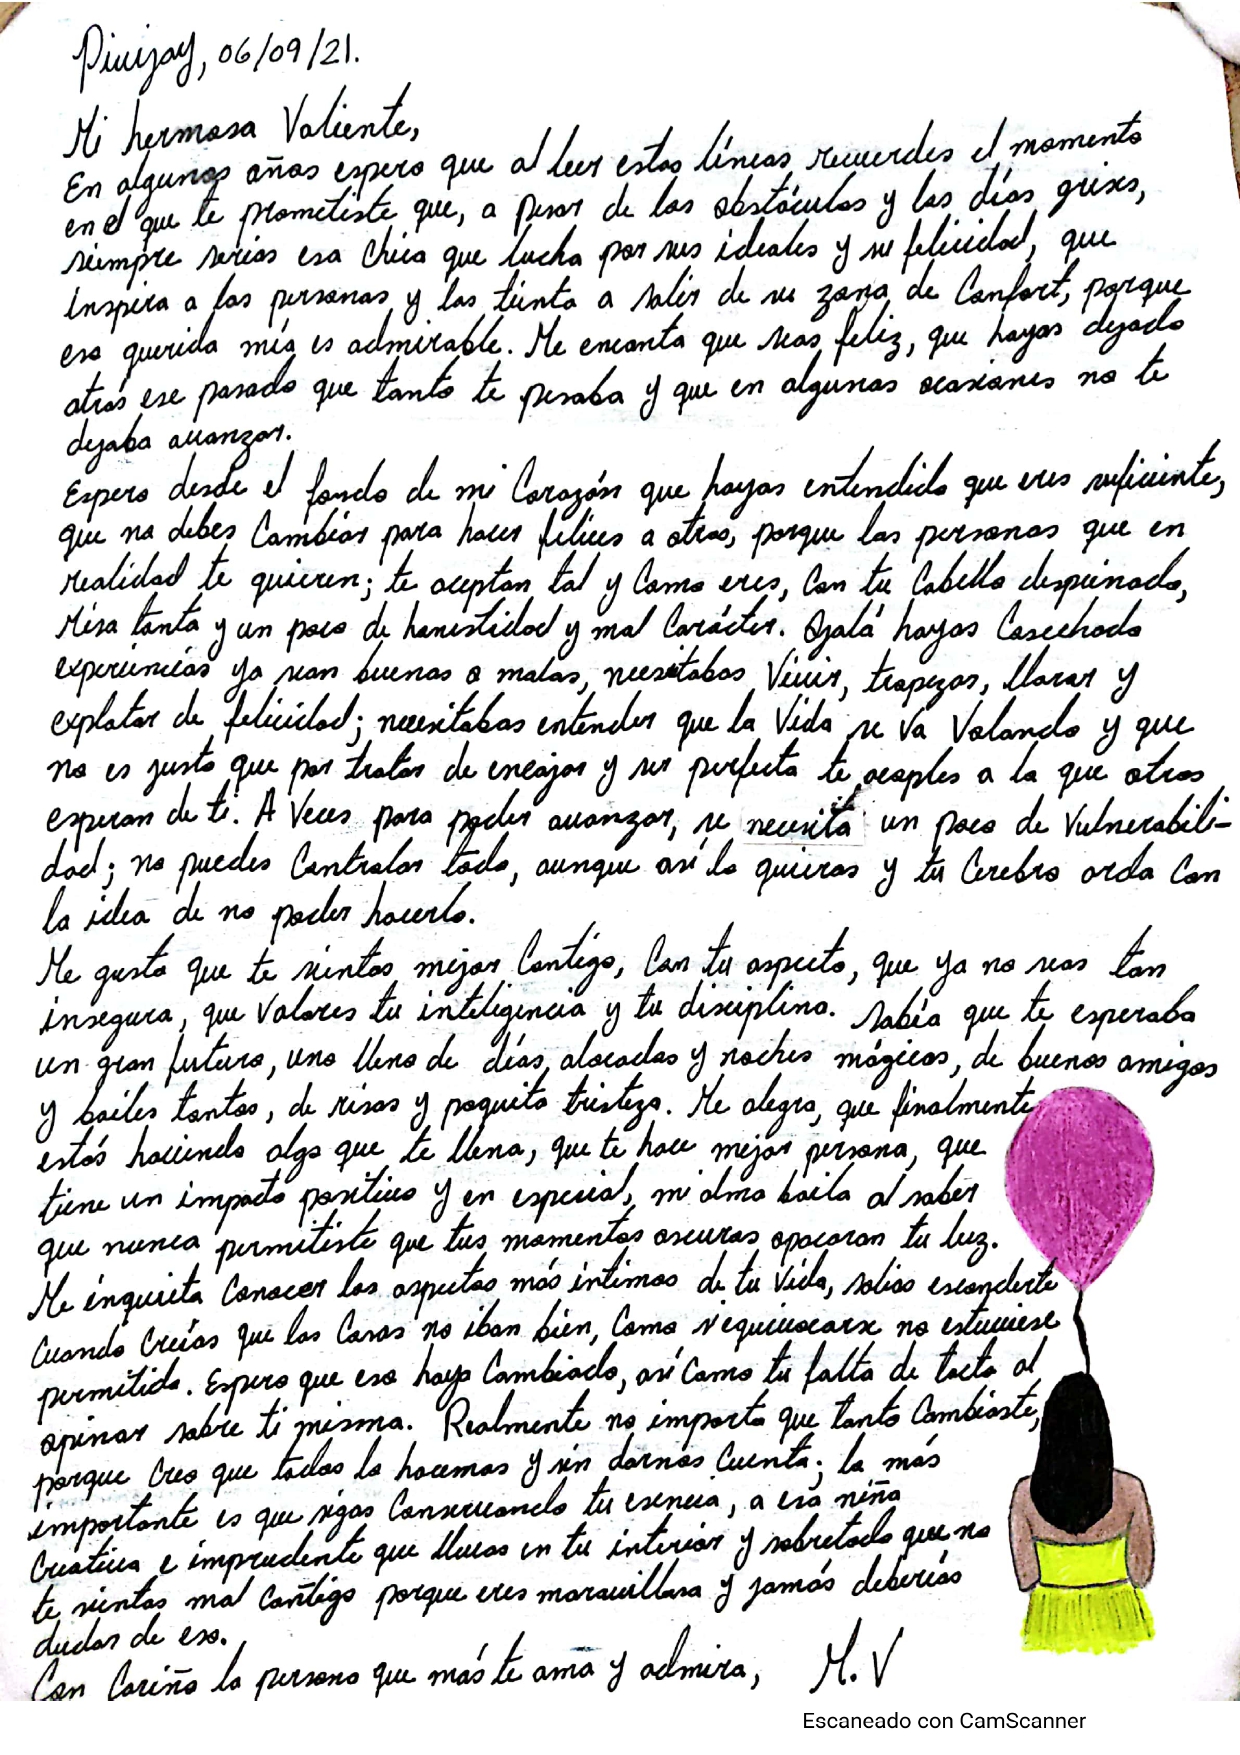 Pivijay, 06/09/21.
Mi hermosa Valiente,
En algunos años espero que al leer estas líneas recuerdes el momento
en el que te prometiste que, a pesar de los obstáculos y los días grises,
siempre serías esa chica que lucha por sus ideales y su felicidad, que
inspira a las personas y las tienta a salir de su zona de Confort, porque
eso querida mía es admirable. Me encanta que seas feliz, que hayas dejado
atrás ese pasado que tanto te pesaba y que en algunas ocasiones no te
dejaba avanzar.
Espero desde el fondo de mi Corazón que hayas entendido que eres suficiente,
que no debes Cambiar para hacer felices a otros, porque las personas que en
realidad te quieren; te aceptan tal y Como eres, Con tu Cabello despeinado,
risa tonta y un poco de honestidad y mal Carácter. Ojalá hayas Cosechado
experiencias ya sean buenas o malas, necesitabas Vivir, tropezar, llorar y
explotar de felicidad; necesitabas entender que la Vida se Va Volando y que
no es justo que por tratar de encajar y ser perfecta te acoples a lo que otros
esperan de ti. A Veces para poder avanzar, se necesita un poco de Vulnerabili-
dad; no puedes Controlar todo, aunque así lo quieras y tu Cerebro arda Con
la idea de no poder hacerlo.
Me gusta que te sientas mejor Contigo, Con tu aspecto, que ya no seas tan
insegura, que Valores tu inteligencia y tu disciplina. Sabía que te esperaba
un gran futuro, uno lleno de días alocados y noches mágicas, de buenos amigos
y bailes tontos, de risas y poquita tristeza. Me alegra, que finalmente
estás haciendo algo que te llena, que te hace mejor persona, que
tiene un impacto positivo y en especial, mi alma baila al saber
que nunca permitiste que tus momentos oscuros opacaran tu luz.
Me inquieta Conocer los aspectos más íntimos de tu Vida, solías esconderte
Cuando Creías que las Cosas no iban bien, Como si equivocarse no estuviese
permitido. Espero que eso haya Cambiado, así Como tu falta de tacto al
opinar sobre ti misma. Realmente no importa que tanto Cambiaste,
porque Creo que todos lo hacemos y sin darnos Cuenta; lo más
importante es que sigas Conservando tu esencia, a esa niña
Creativa e imprudente que llevas en tu interior y sobretodo que no
te sientas mal Contigo porque eres maravillosa y jamás deberías
dudar de eso.
Con Cariño la persona que más te ama y admira, M.V
Escaneado con CamScanner